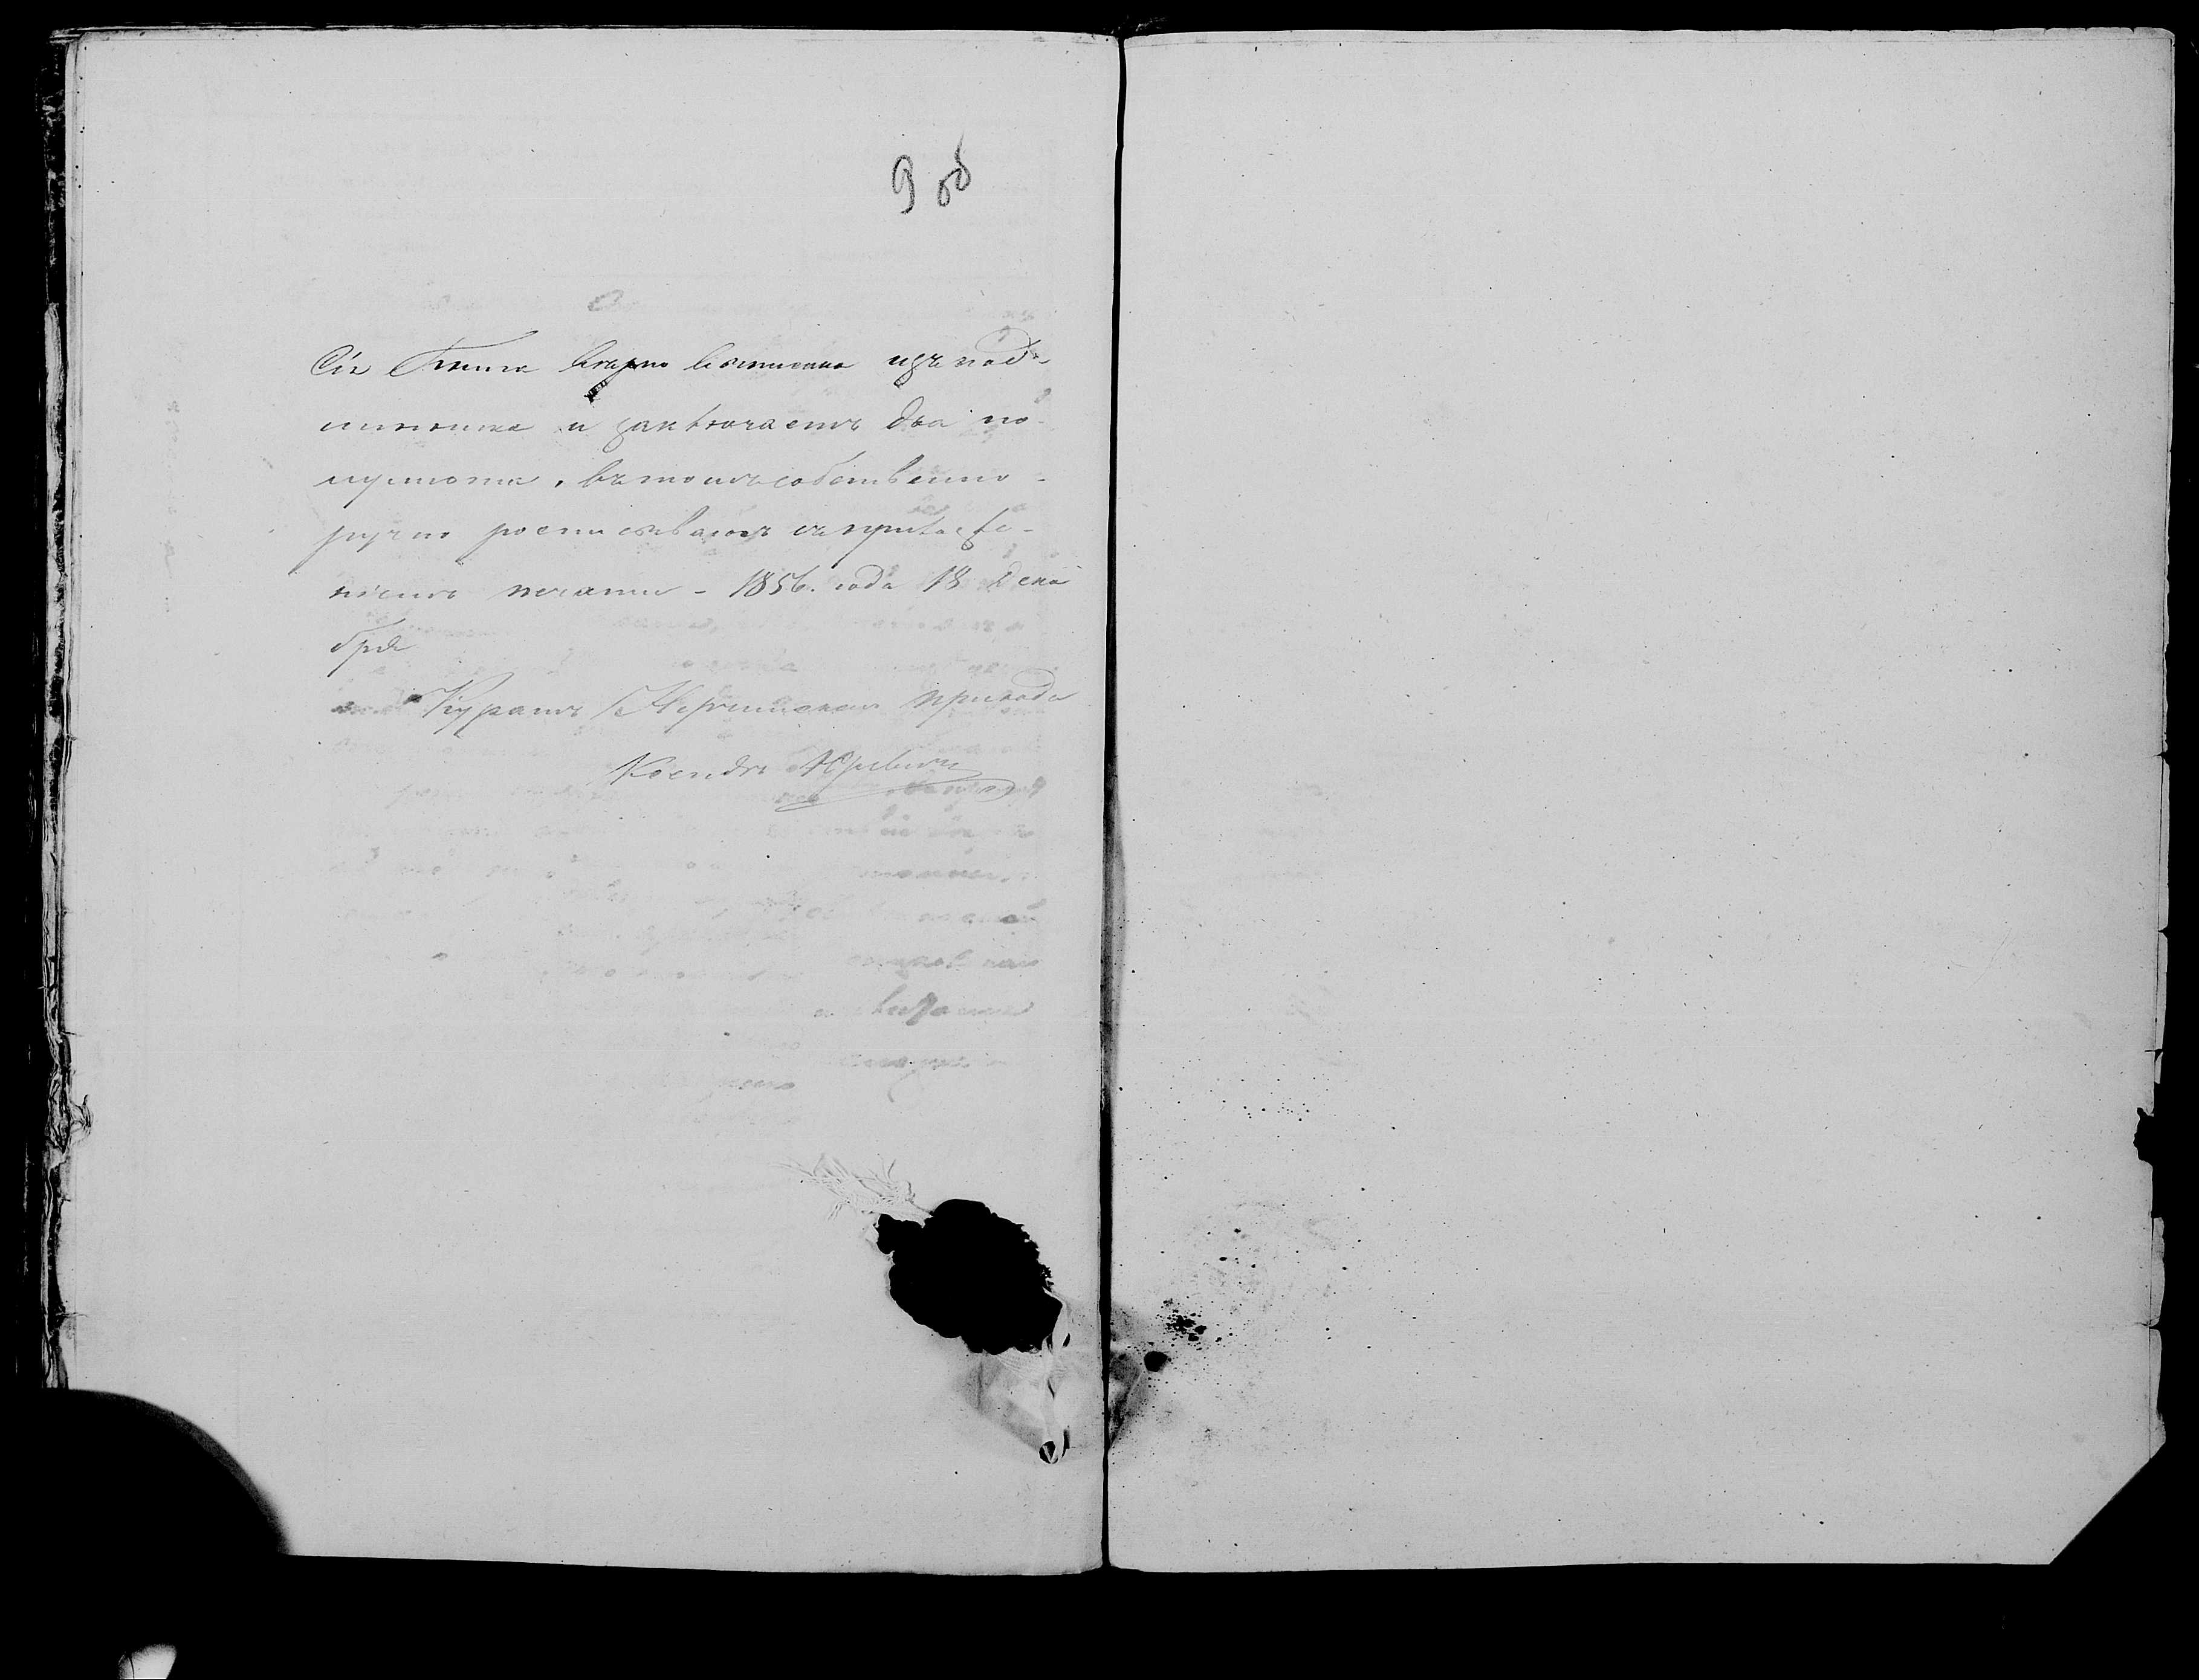 9 об
Сія Книга вѣрно выписана изъ под-
линника и заключаетъ два по-
лулиста, въ томъ собственно-
ручно росписываюсь съ приложе-
ніемъ печати - 1856. года 18 Дека
бря
Куратъ Нерчинскаго прихода
Ксендзъ